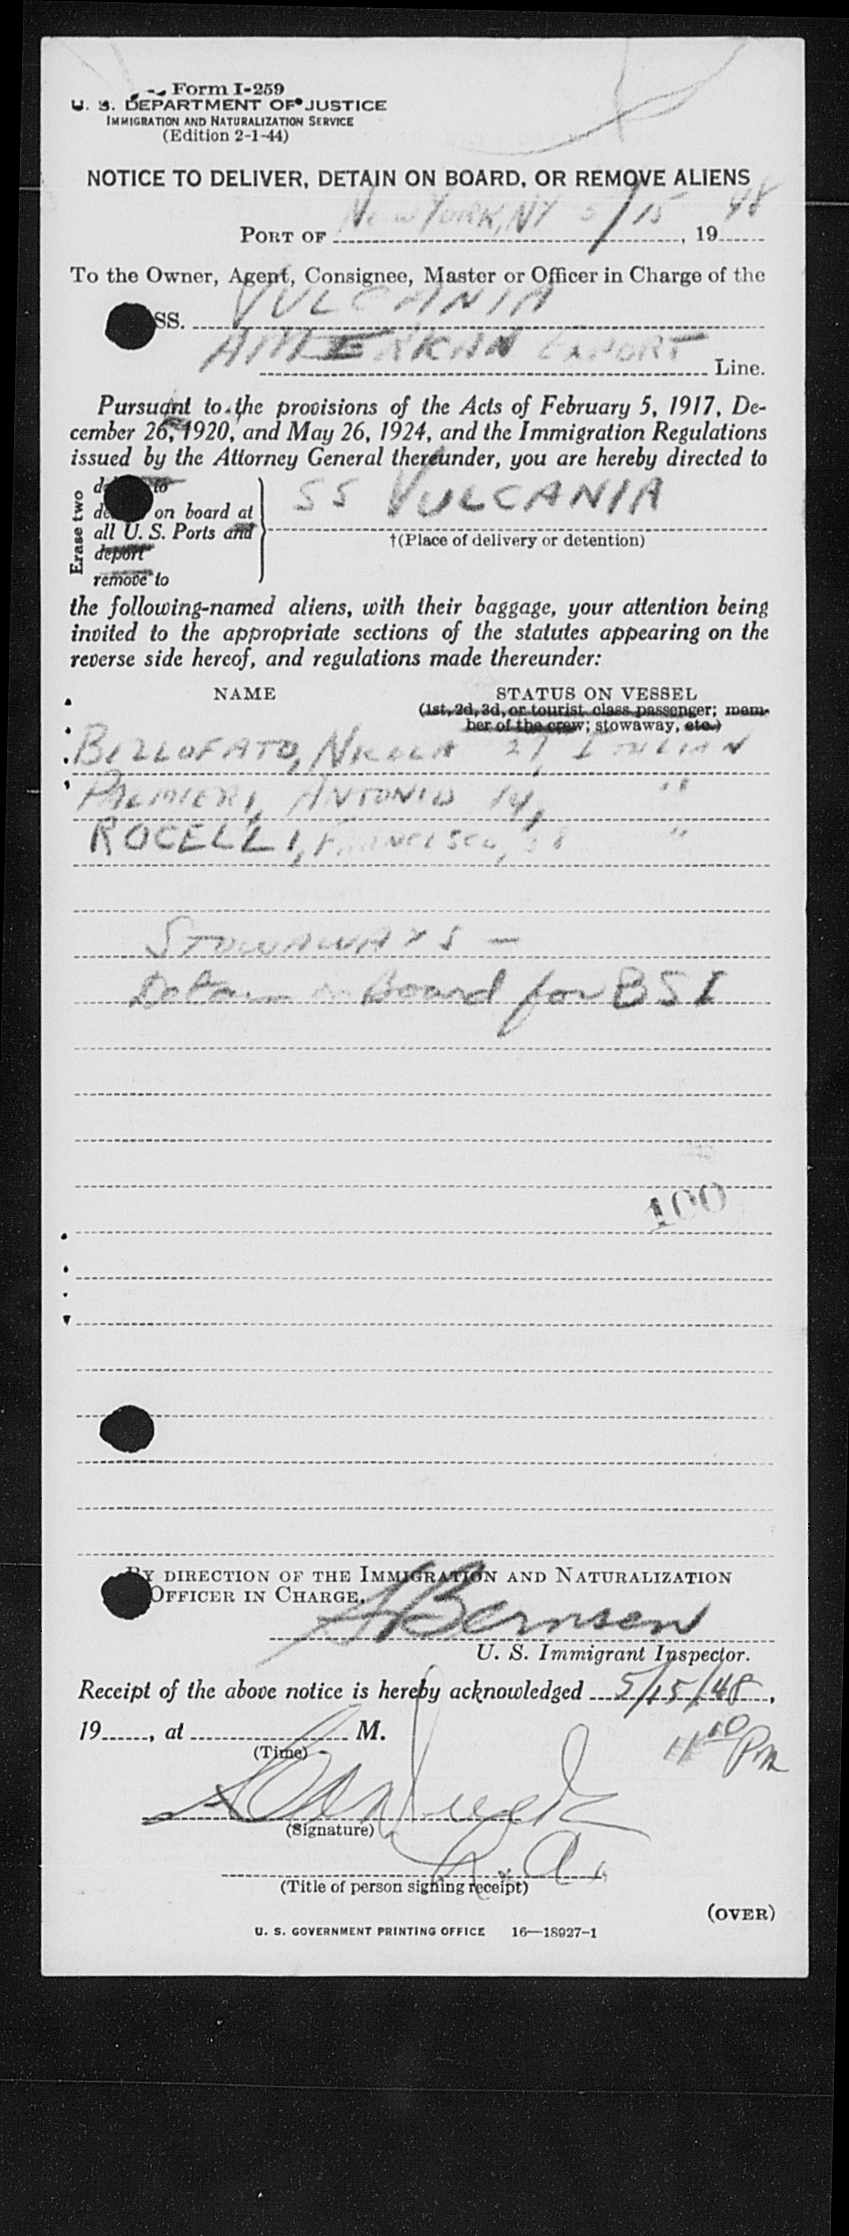 Form I-259
U. S. DEPARTMENT OF JUSTICE
IMMIGRATION AND NATURALIZATION SERVICE
(Edition 2-1-44)
NOTICE TO DELIVER, DETAIN ON BOARD, OR REMOVE ALIENS
PORT OF New York, NY 5/15, 1948
To the Owner, Agent, Consignee, Master or Officer in Charge of the
SS. VULCANIA
AMERICAN EXPORT Line.
Pursuant to the provisions of the Acts of February 5, 1917, De-
cember 26, 1920, and May 26, 1924, and the Immigration Regulations
issued by the Attorney General thereunder, you are hereby directed to
Erase two
to
on board at SS VULCANIA
all U. S. Ports and
deport
remove to
†(Place of delivery or detention)
the following-named aliens, with their baggage, your attention being
invited to the appropriate sections of the statutes appearing on the
reverse side hereof, and regulations made thereunder:
NAME STATUS ON VESSEL
(1st, 2d, 3d, or tourist class passenger; mem-
ber of the crew; stowaway, etc.)
NICOLA 27, ITALIAN
PALMIERI, ANTONIO 14, "
ROCELLI, FRANCISCO, "
STOWAWAYS -
Detain on Board for BSI
100
BY DIRECTION OF THE IMMIGRATION AND NATURALIZATION
OFFICER IN CHARGE.
Bernsen
U. S. Immigrant Inspector.
Receipt of the above notice is hereby acknowledged 5/15/48,
19, at M. 11 10 Pm
(Time)
(Signature)
(Title of person signing receipt)
(OVER)
U. S. GOVERNMENT PRINTING OFFICE 16—18927-1